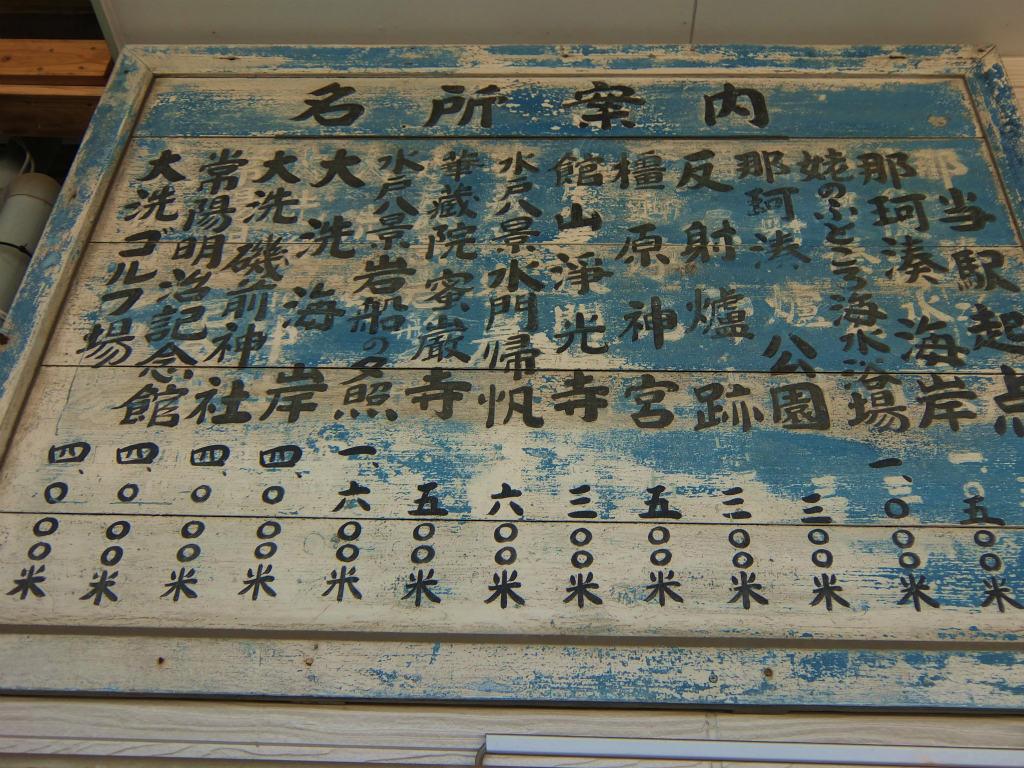 名所案内
当駅起点
那珂湊海岸 五〇〇米
姥のふところ海水浴場 一、〇〇〇米
那珂湊公園 三〇〇米
反射爐跡 三〇〇米
橿原神宮 五〇〇米
館山淨光寺 三〇〇米
水戸八景水門帰帆 六〇〇米
華蔵院蜜巌寺 五〇〇米
水戸八景岩船の夕照 一、六〇〇米
大洗海岸 四、〇〇〇米
大洗磯前神社 四、〇〇〇米
常陽明治記念館 四、〇〇〇米
大洗ゴルフ場 四、〇〇〇米